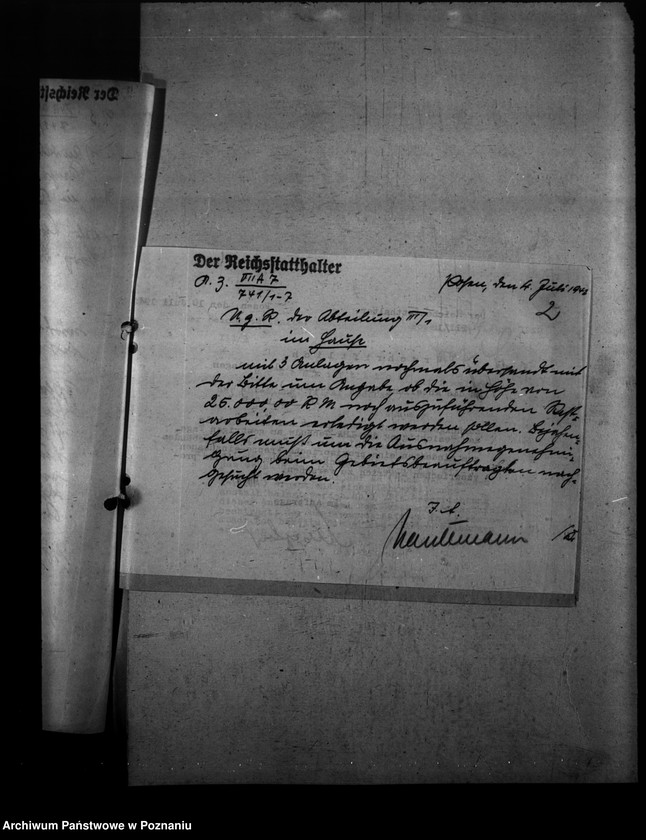 Der Reichsst
Der Reichsstatthalter
A. Z. III A 7
741/1-7
Posen, den 4. Juli 194
2
U. g. R. der Abteilung III/1
im Hause
mit 3 Anlagen nochmals übersandt mit
der Bitte um Angabe ob die in Höhe von
25.000,00 RM noch auszuführenden Rest-
arbeiten erledigt werden sollen. Bejahen-
falls muß um die Ausnahmegenehmi-
gung beim Gebietsbeauftragten nach-
gesucht werden.
I. A.
Archiwum Państwowe w Poznaniu